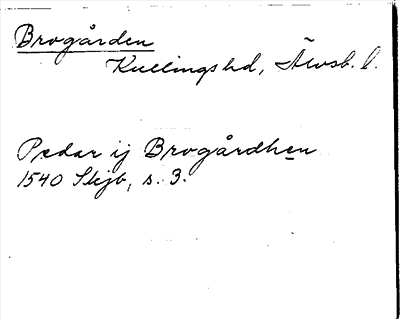 Brogården
Kullings hd, Älvsb. l.
Pedar ij Brogårdhen
1540 Skjb, s. 3.